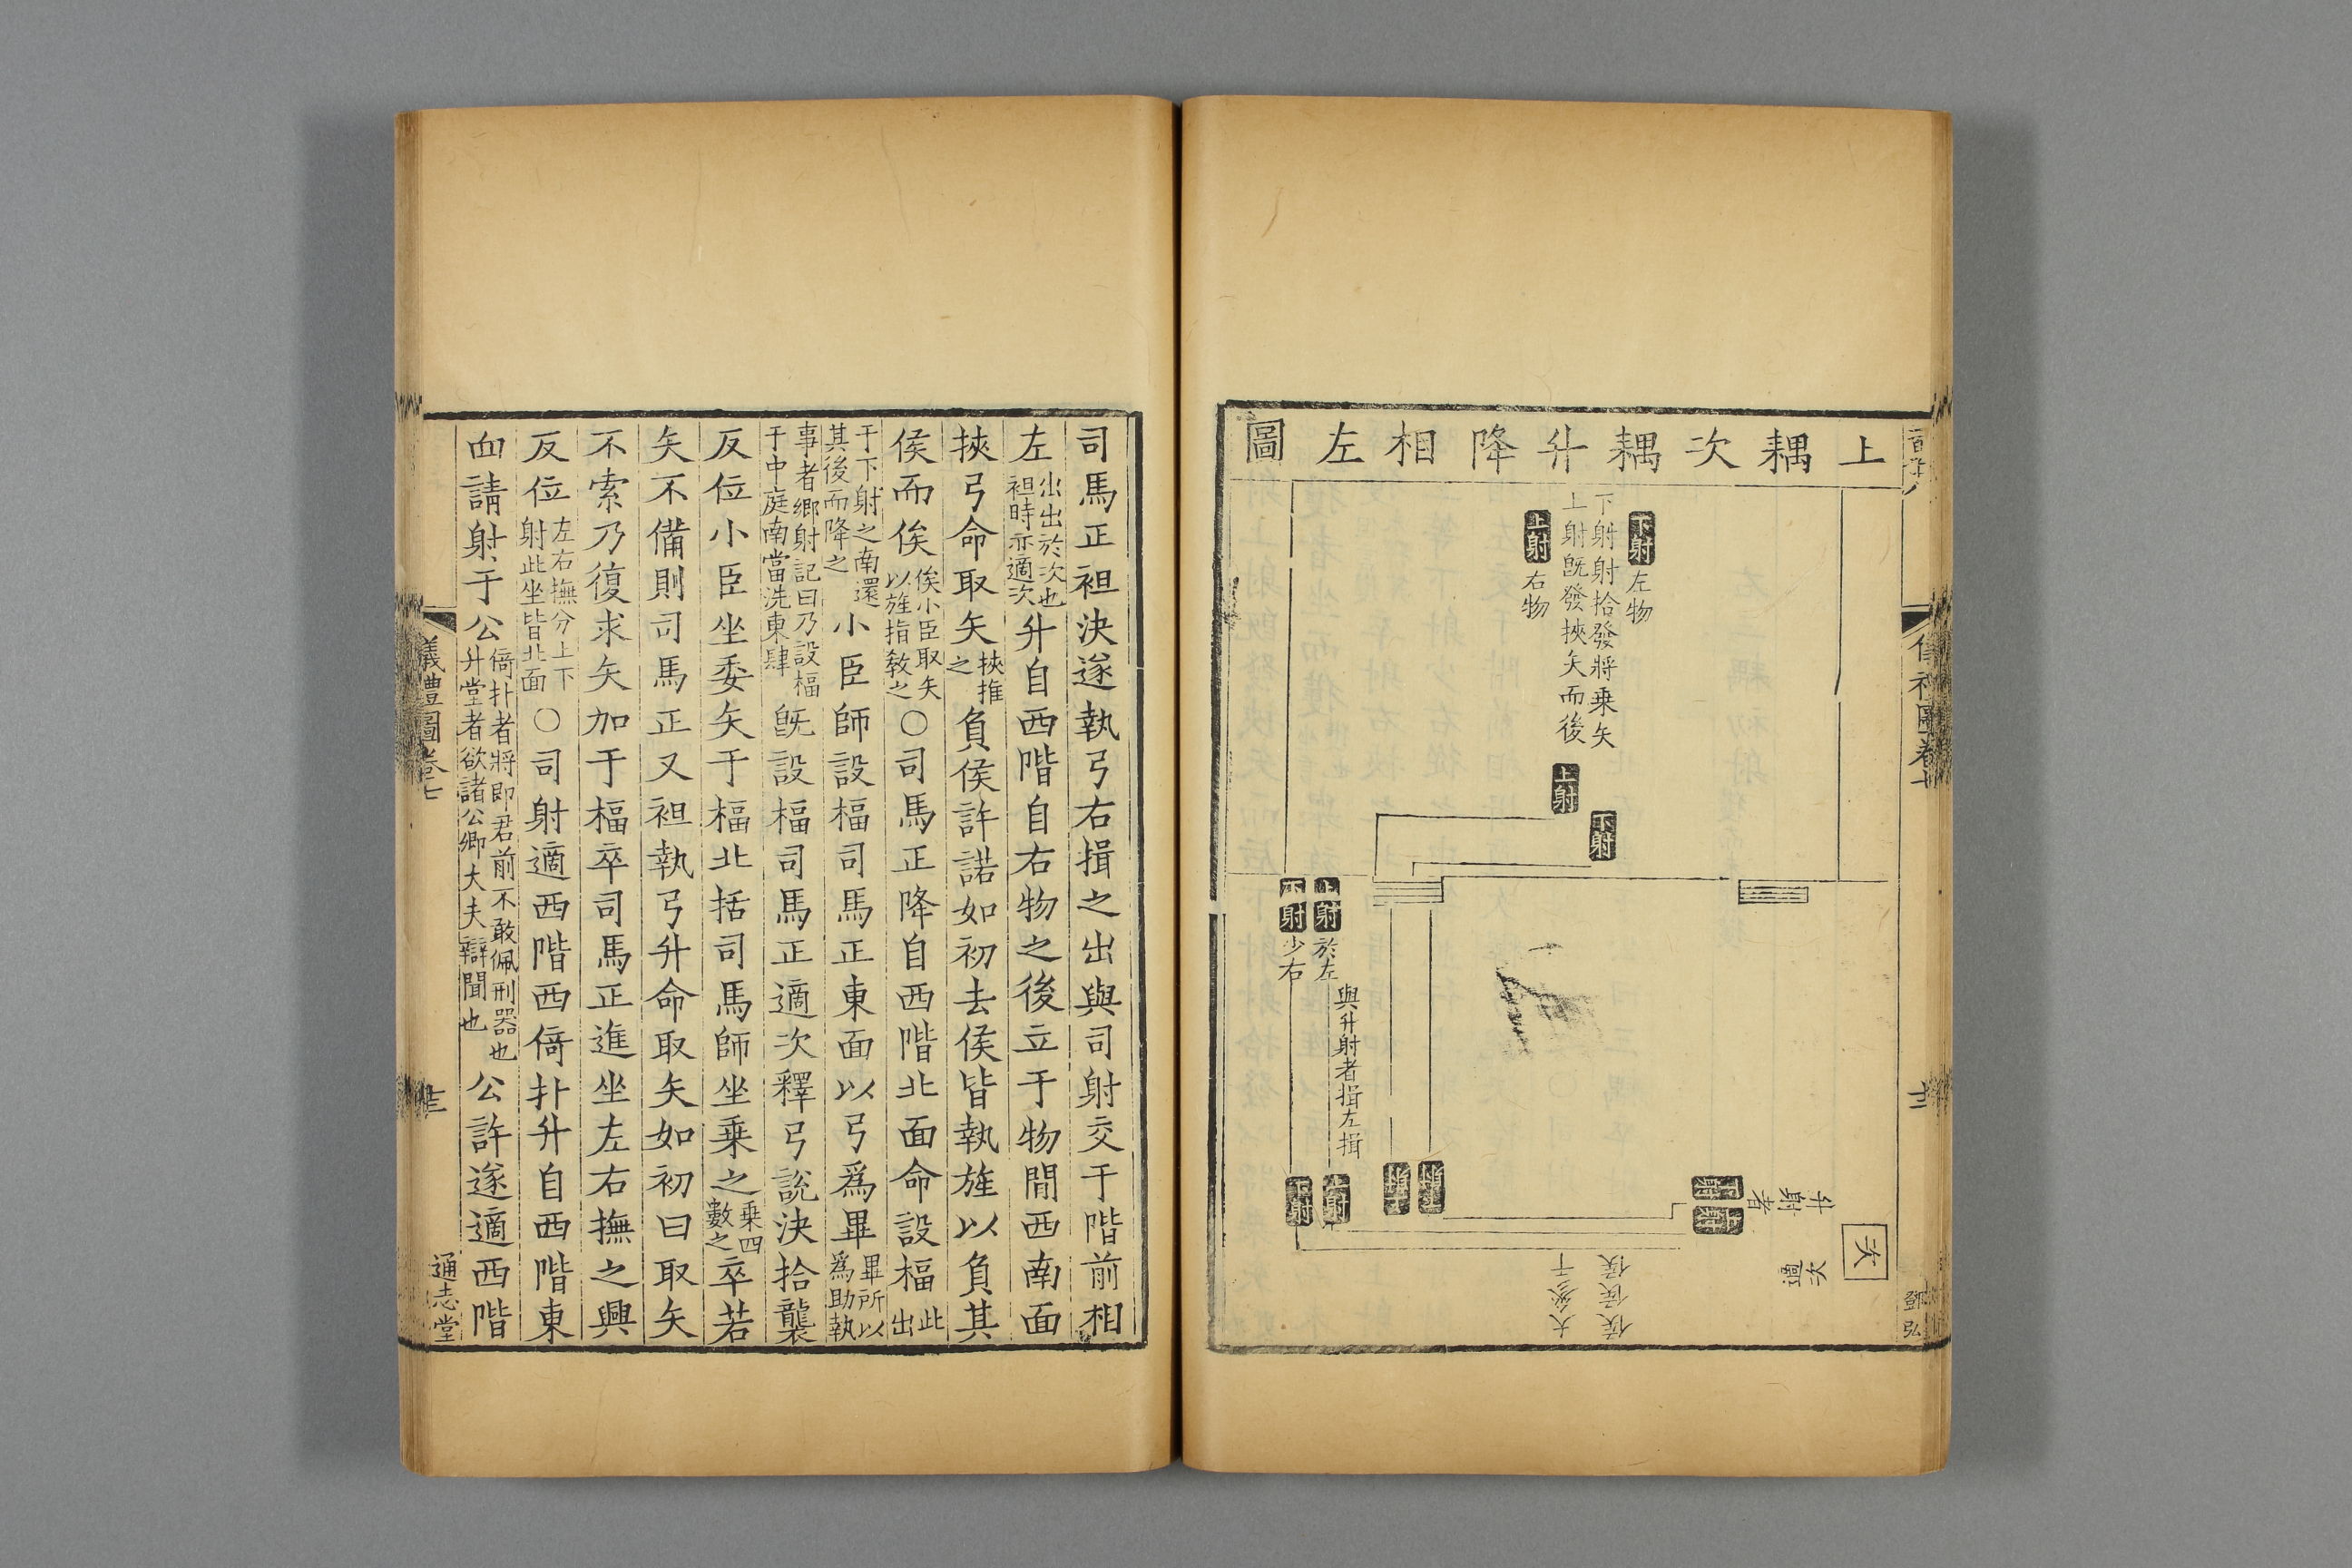 上耦次耦升降相左圖
下射
左物
下射射拾發將乗矢
上射旣發挾矢而後
上射
右物
上射
下射
上射
於左
下射
少右
與升射者揖左揖
下射
升射者
次
適次
侯侯侯
大參干
司馬正袒決遂執弓右揖之出與司射交于階前相
左
出出於次也
袒時亦適次
升自西階自右物之後立于物間西南面
挾弓命取矢
挾推
之
負侯許諾如初去侯皆執旌以負其
侯而俟
俟小臣取矢
以旌指敎之
〇司馬正降自西階北面命設楅
此
出
于下射之南還
其後而降之
小臣師設楅司馬正東面以弓爲畢
畢所以
爲助執
事者鄉射記曰乃設楅
于中庭南當洗東肆
旣設楅司馬正適次釋弓說決拾襲
反位小臣坐委矢于楅北括司馬師坐乗之
乗四
數之
卒若
矢不備則司馬正又袒執弓升命取矢如初曰取矢
不索乃復求矢加于楅卒司馬正進坐左右撫之興
反位
左右撫分上下
射此坐皆北面
〇司射適西階西倚扑升自西階東
面請射于公
倚扑者將即君前不敢佩刑器也
升堂者欲諸公卿大夫辯聞也
公許遂適西階
儀禮圖卷七
通志堂